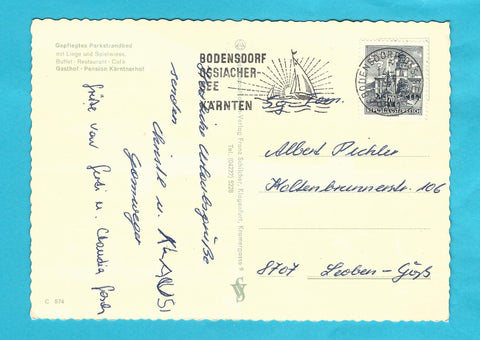 Gepflegtes Parkstrandbad
mit Liege und Spielwiese,
Buffet - Restaurant - Café
Gasthof - Pension Kärntnerhof
BODENSDORF
OSSIACHER-
SEE
KÄRNTEN
BODENSDORF
REPUBLIK ÖSTERREICH
Sg. Fam.
Albert Pichler
Kaltenbrunnerstr. 106
8707 Leoben-Göß
Herzliche Urlaubsgrüße
senden
Christl u. KLAUSI
Grüße von u. Claudia
Verlag Franz Schilcher, Klagenfurt, Kramergasse 9
Tel. (04222) 5228
C 574